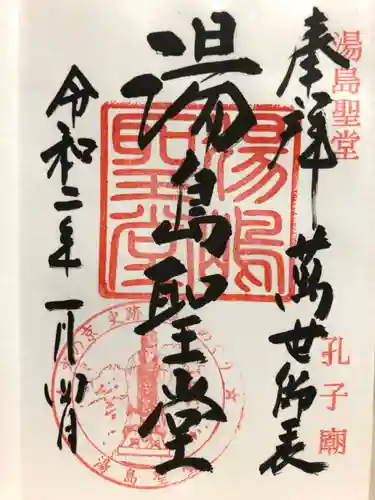 湯島聖堂
奉拝 萬世師表
孔子廟
湯島聖堂
令和二年一月四日
湯島聖堂